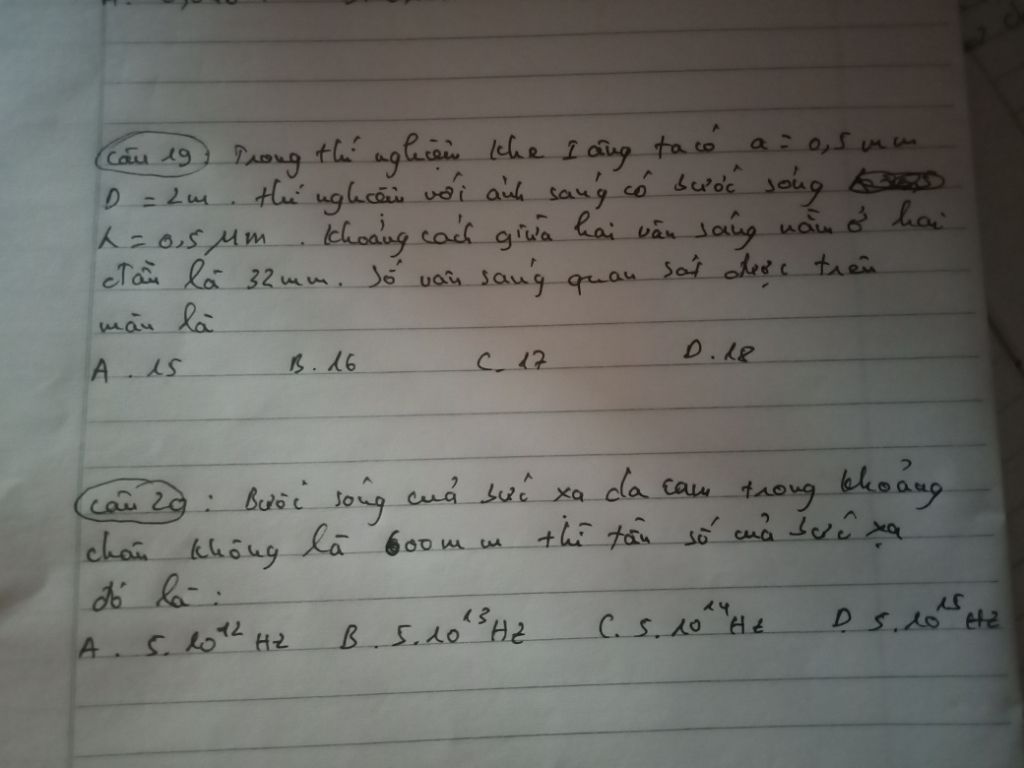 Câu 19) Trong thí nghiệm khe Iâng ta có a = 0,5mm
D = 2m. thí nghiệm với ánh sáng có bước sóng
λ = 0,5 μm. Khoảng cách giữa hai vân sáng nằm ở hai
đầu là 32mm. Số vân sáng quan sát được trên
màn là
A. 15 B. 16 C. 17 D. 18
Câu 20: Bước sóng cuả bức xạ da cam trong khoảng
chân không là 600mm thì tần số cuả bức xạ
đó là:
A. 5.10¹² Hz B. 5.10¹³ Hz C. 5.10¹⁴ Hz D. 5.10¹⁵ Hz